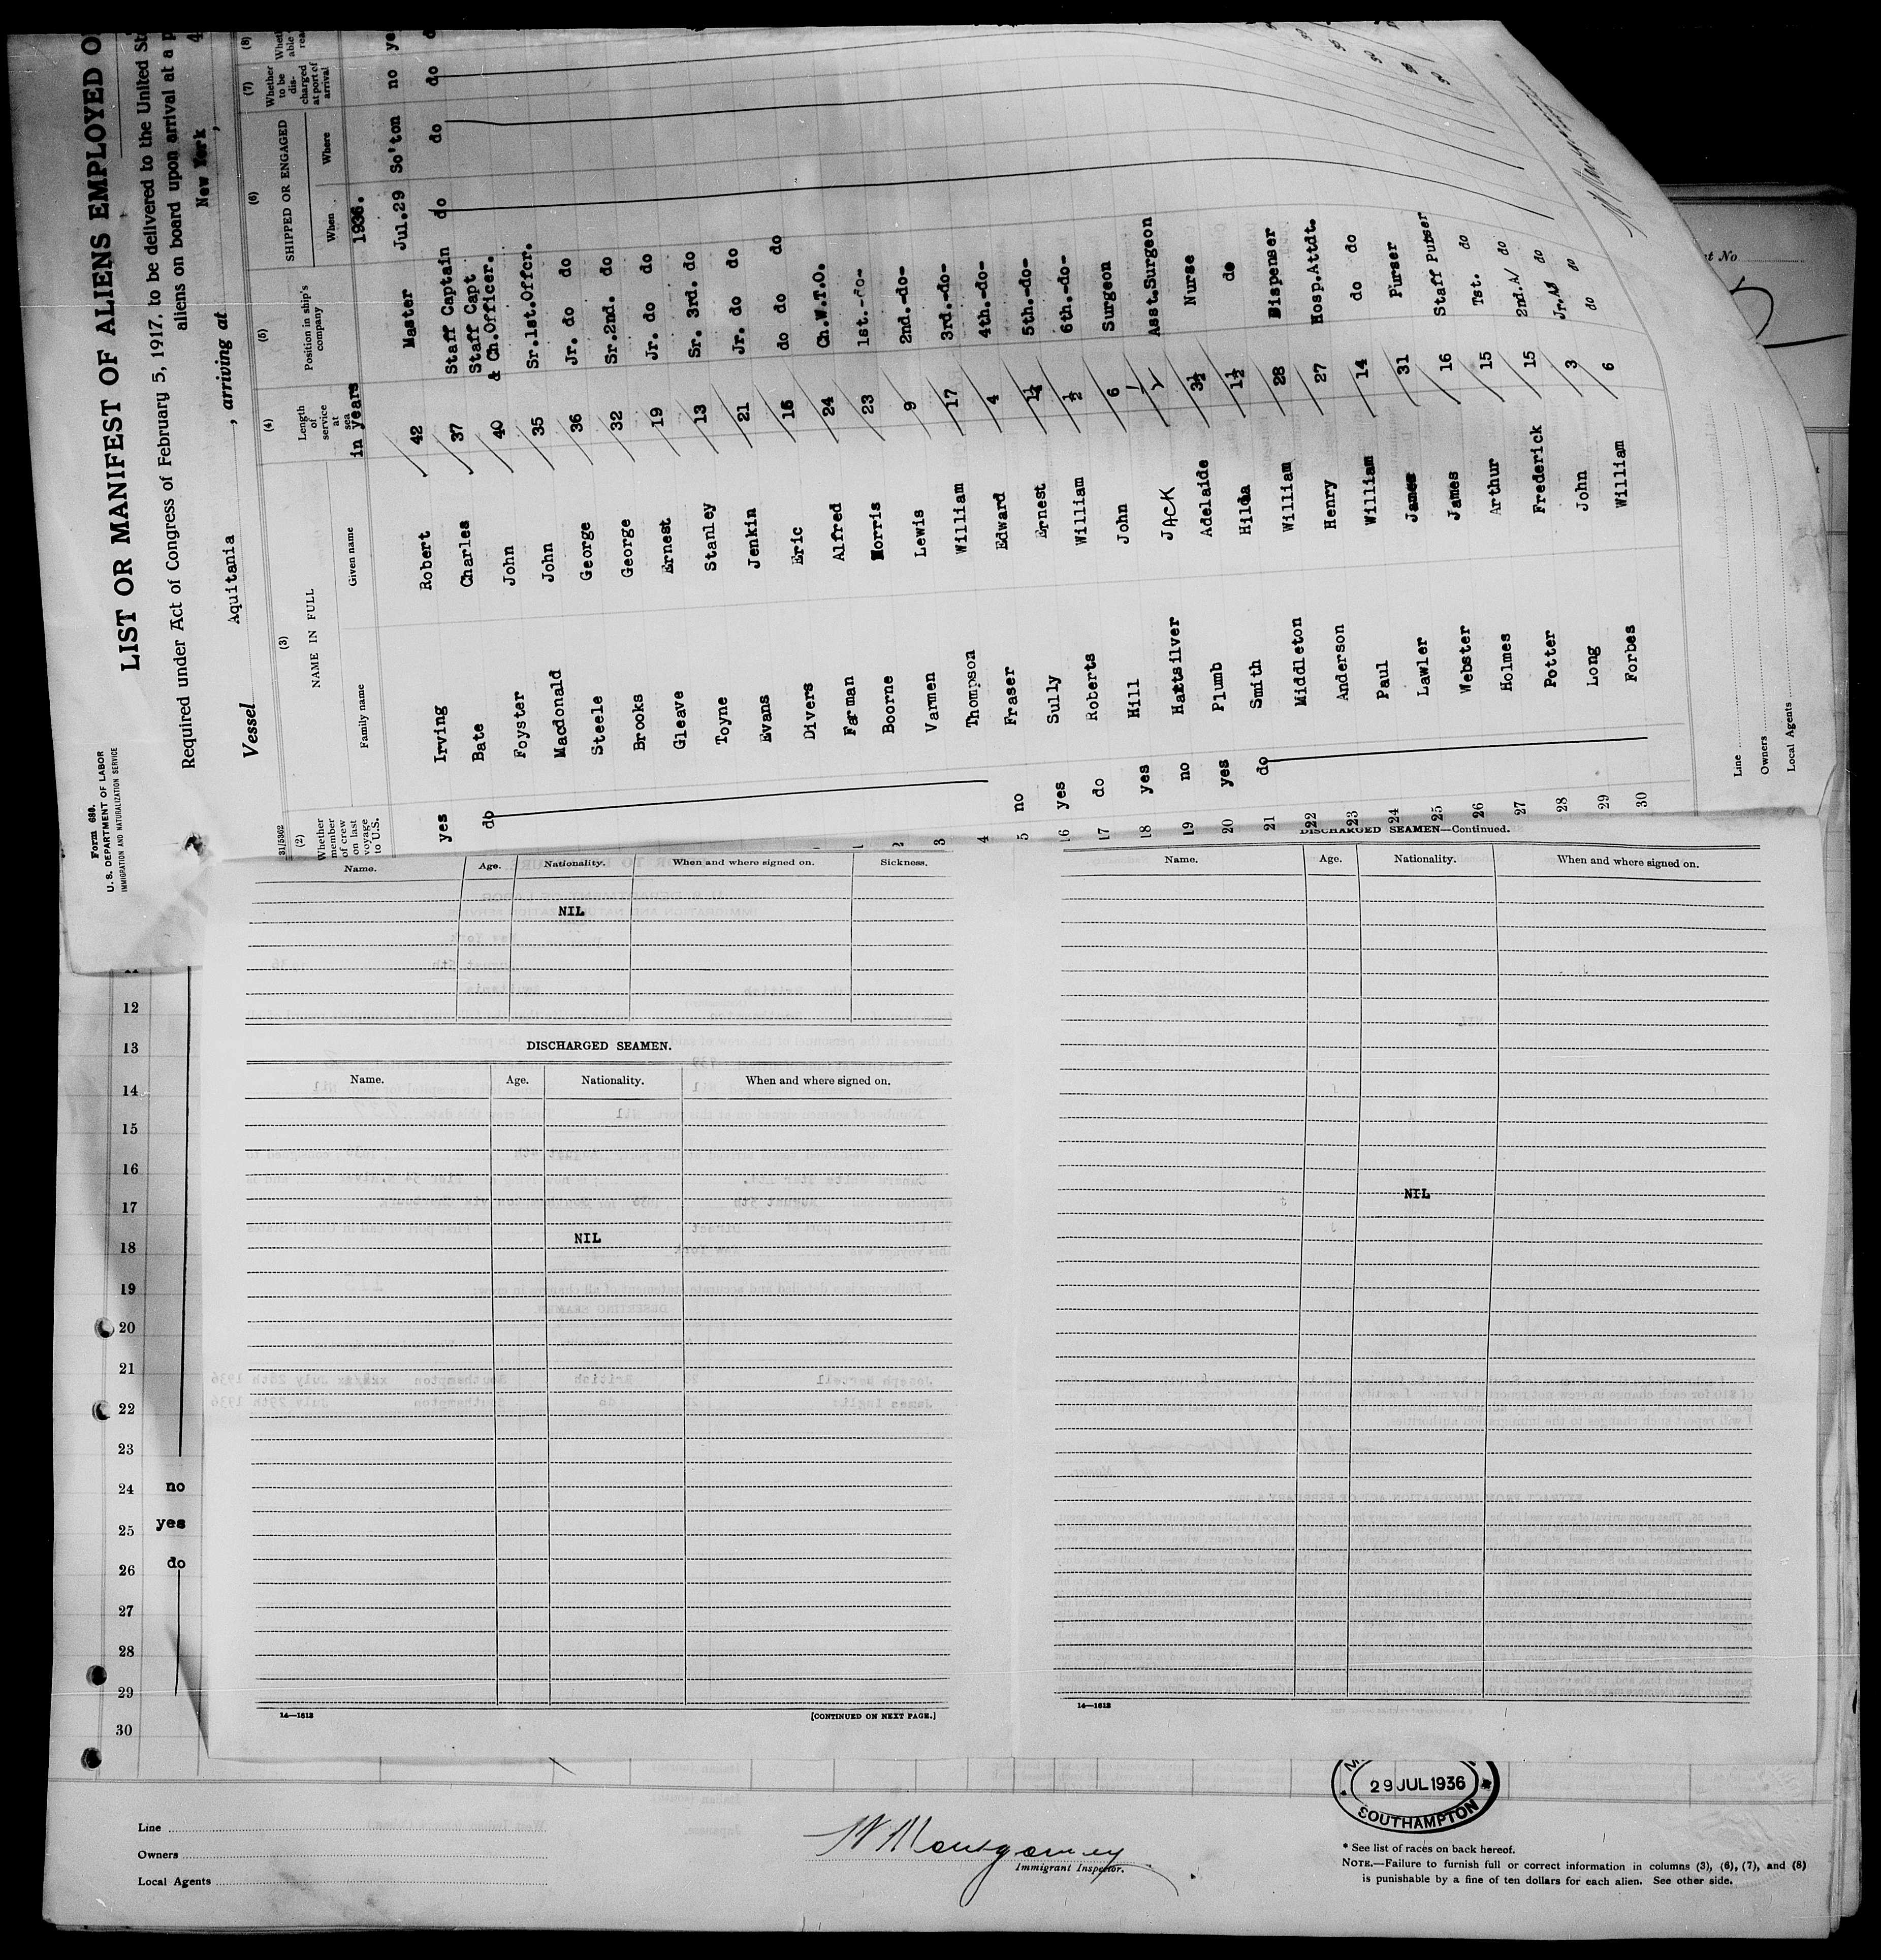 Form 680.
U. S. DEPARTMENT OF LABOR
IMMIGRATION AND NATURALIZATION SERVICE
LIST OR MANIFEST OF ALIENS EMPLOYED O
Required under Act of Congress of February 5, 1917, to be delivered to the United St
aliens on board upon arrival at a p
Vessel Aquitania , arriving at New York , 4
31/5362
(2) Whether member of crew on last voyage to U.S.
(3) NAME IN FULL
Family name Given name
(4) Length of service at sea in years
(5) Position in ship's company
(6) SHIPPED OR ENGAGED
When Where
(7) Whether to be discharged at port of arrival
(8)
1936.
yes Irving Robert 42 Master Jul.29 So'ton no ye
do Bate Charles 37 Staff Captain do do do
Foyster John 40 Staff Capt & Ch.Officer.
Macdonald John 35 Sr.1st.Offcr.
Steele George 36 Jr. do do
Brooks George 32 Sr.2nd. do
Gleave Ernest 19 Jr. do do
Toyne Stanley 13 Sr. 3rd. do
Evans Jenkin 21 Jr. do do
Divers Eric 16 do do do
Farman Alfred 24 Ch.W.T.O.
Boorne Morris 23 1st.-do-
Varmen Lewis 9 2nd.-do-
Thompson William 17 3rd.-do-
no Fraser Edward 4 4th.-do-
yes Sully Ernest 5th.-do-
do Roberts William ½ 6th.-do-
18 yes Hill John 6 Surgeon
19 no Hattsilver JACK 1/2 Asst.Surgeon
20 yes Plumb Adelaide 3½ Nurse
21 do Smith Hilda 1½ do
22 Middleton William 28 Dispenser
23 Anderson Henry 27 Hosp.Attdt.
24 Paul William 14 do do
25 Lawler James 31 Purser
26 Webster James 16 Staff Purser
27 Holmes Arthur 15 Tst. do
28 Potter Frederick 15 2nd.A/ do
29 Long John 3 Jr.A/ do
30 Forbes William 6 do do
Line
Owners
Local Agents
Name. Age. Nationality. When and where signed on. Sickness.
NIL
DISCHARGED SEAMEN.
Name. Age. Nationality. When and where signed on.
NIL
14—1613
[CONTINUED ON NEXT PAGE.]
DISCHARGED SEAMEN—Continued.
Name. Age. Nationality. When and where signed on.
NIL
14—1613
t No
11
12
13
14
15
16
17
18
19
20
21
22
23
24 no
25 yes
26 do
27
28
29
30
Line
Owners
Local Agents
W Montgomery
Immigrant Inspector.
29 JUL 1936
SOUTHAMPTON
* See list of races on back hereof.
NOTE.—Failure to furnish full or correct information in columns (3), (6), (7), and (8)
is punishable by a fine of ten dollars for each alien. See other side.